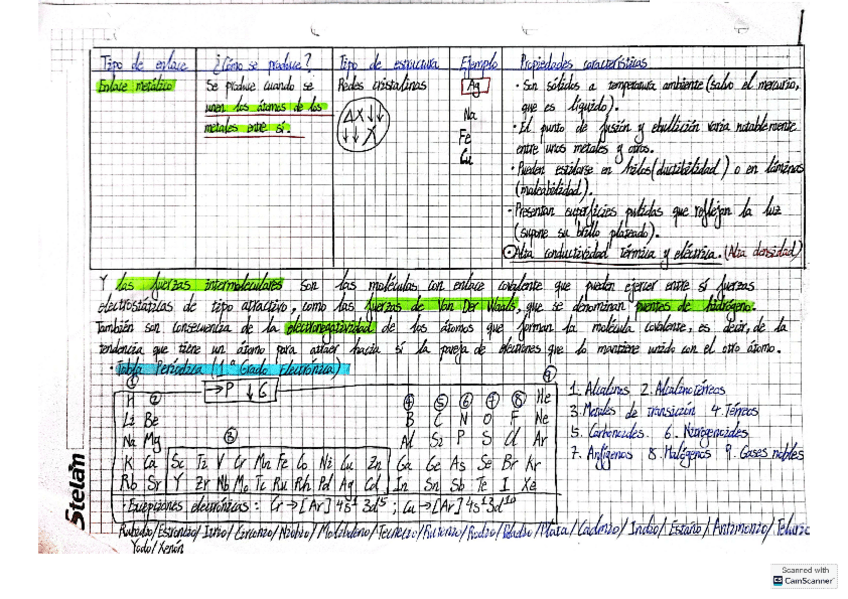 Tipo de enlace ¿Cómo se produce? Tipo de estructura Ejemplo Propiedades características
Enlace metálico
Se produce cuando se
unen los átomos de los
metales entre sí.
Redes cristalinas
Ag
Na
Fe
Cu
· Son sólidos a temperatura ambiente (salvo el mercurio,
que es líquido).
· El punto de fusión y ebullición varía notablemente
entre unos metales y otros.
· Pueden estirarse en hilos (ductibilidad) o en láminas
(maleabilidad).
· Presentan superficies pulidas que reflejan la luz
(supone su brillo plateado).
Alta conductividad térmica y eléctrica. (Alta densidad)
Y las fuerzas intermoleculares son las moléculas con enlace covalente que pueden ejercer entre sí fuerzas
electrostáticas de tipo atractivo, como las fuerzas de Van Der Waals, que se denominan puentes de hidrógeno.
También son consecuencia de la electronegatividad de los átomos que forman la molécula covalente, es decir, de la
tendencia que tiene un átomo para atraer hacia sí la pareja de electrones que lo mantiene unido con el otro átomo.
· Tabla Periódica (1º Grado Electrónica)
① → P ↓ G ⑨
H ② ④ ⑤ ⑥ ⑦ ⑧ He
Li Be B C N O F Ne
Na Mg ③ Al Si P S Cl Ar
K Ca Sc Ti V Cr Mn Fe Co Ni Cu Zn Ga Ge As Se Br Kr
Rb Sr Y Zr Nb Mo Tc Ru Rh Pd Ag Cd In Sn Sb Te I Xe
· Excepciones electrónicas: Cr → [Ar] 4s¹ 3d⁵ ; Cu → [Ar] 4s¹ 3d¹⁰
1. Alcalinos 2. Alcalinotérreos
3. Metales de transición 4. Térreos
5. Carbonoides. 6. Nitrogenoides
7. Anfígenos 8. Halógenos 9. Gases nobles
Rubidio/Estroncio/Itrio/Circonio/Niobio/Molibdeno/Tecnecio/Rutenio/Rodio/Paladio/Plata/Cadmio/Indio/Estaño/Antimonio/Telurio
Yodo/Xenón
Stelan
Scanned with
CS CamScanner